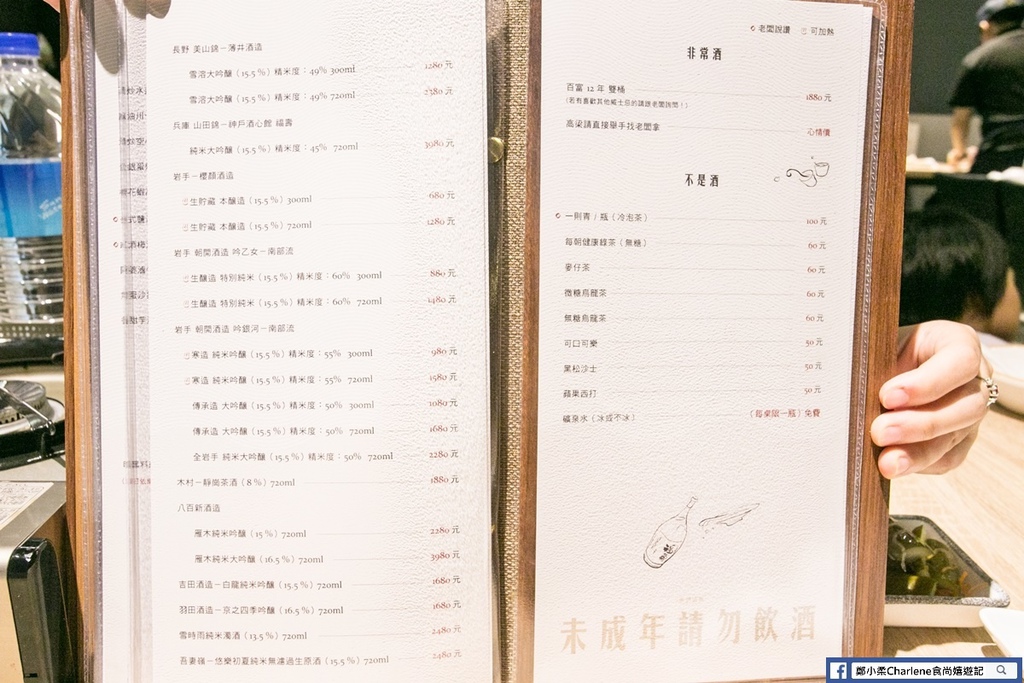 長野 美山錦－薄井酒造
雪溶大吟釀（15.5%）精米度：49% 300ml 1280元
雪溶大吟釀（15.5%）精米度：49% 720ml 2380元
兵庫 山田錦－神戶酒心館 福壽
純米大吟釀（15.5%）精米度：45% 720ml 3980元
岩手－櫻顏酒造
生貯藏 本釀造（15.5%）300ml 680元
生貯藏 本釀造（15.5%）720ml 1280元
岩手 朝開酒造 吟乙女－南部流
生釀造 特別純米（15.5%）精米度：60% 300ml 880元
生釀造 特別純米（15.5%）精米度：60% 720ml 1480元
岩手 朝開酒造 吟銀河－南部流
寒造 純米吟釀（15.5%）精米度：55% 300ml 980元
寒造 純米吟釀（15.5%）精米度：55% 720ml 1580元
傳承造 大吟釀（15.5%）精米度：50% 300ml 1080元
傳承造 大吟釀（15.5%）精米度：50% 720ml 1680元
全岩手 純米大吟釀（15.5%）精米度：50% 720ml 2280元
木村－靜崗茶酒（8%）720ml 1880元
八百新酒造
雁木純米吟釀（15%）720ml 2280元
雁木純米大吟釀（16.5%）720ml 3980元
吉田酒造－白龍純米吟釀（15.5%）720ml 1680元
羽田酒造－京之四季吟釀（16.5%）720ml 1680元
雪時雨純米濁酒（13.5%）720ml 2480元
吾妻嶺－悠樂初夏純米無濾過生原酒（15.5%）720ml 2480元
老闆說讚 可加熱
非常酒
百富 12 年 雙桶 1880元
（若有喜歡其他威士忌的請跟老闆詢問！）
高粱請直接舉手找老闆拿 心情價
不是酒
一則青 / 瓶（冷泡茶） 100元
每朝健康綠茶（無糖） 60元
麥仔茶 60元
微糖烏龍茶 60元
無糖烏龍茶 60元
可口可樂 50元
黑松沙士 50元
蘋果西打 50元
礦泉水（冰或不冰） （每桌限一瓶）免費
未成年請勿飲酒
鄭小柔Charlene食尚嬉遊記